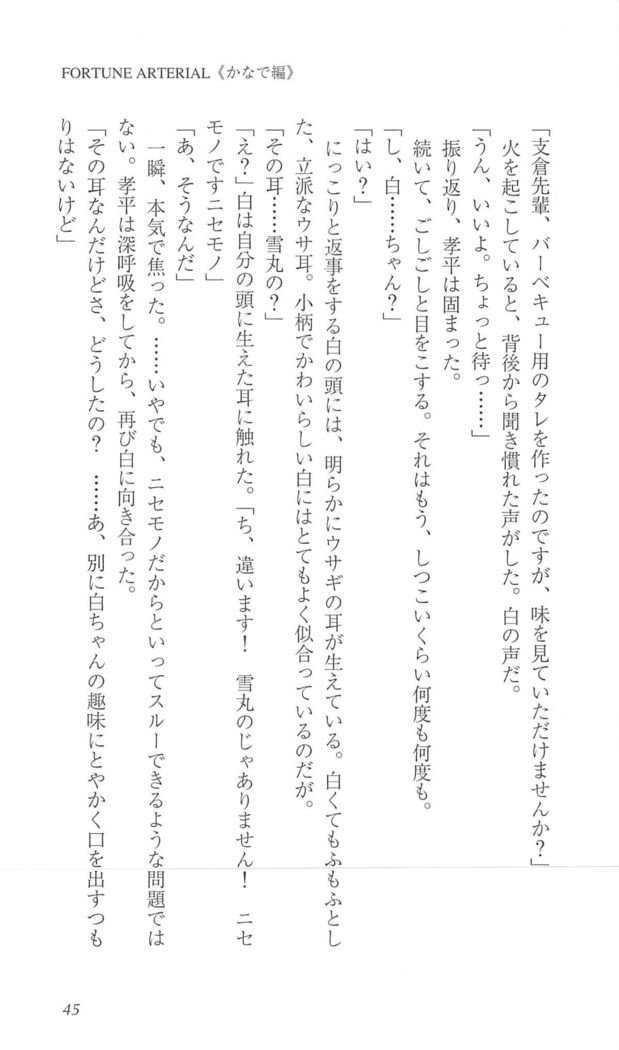 FORTUNE ARTERIAL《かなで編》
「支倉先輩、バーベキュー用のタレを作ったのですが、味を見ていただけませんか？」
火を起こしていると、背後から聞き慣れた声がした。白の声だ。
「うん、いいよ。ちょっと待っ……」
振り返り、孝平は固まった。
続いて、ごしごしと目をこする。それはもう、しつこいくらい何度も何度も。
「し、白……ちゃん？」
「はい？」
にっこりと返事をする白の頭には、明らかにウサギの耳が生えている。白くてもふもふとし
た、立派なウサ耳。小柄でかわいらしい白にはとてもよく似合っているのだが。
「その耳……雪丸の？」
「え？」白は自分の頭に生えた耳に触れた。「ち、違います！　雪丸のじゃありません！　ニセ
モノですニセモノ」
「あ、そうなんだ」
一瞬、本気で焦った。……いやでも、ニセモノだからといってスルーできるような問題では
ない。孝平は深呼吸をしてから、再び白に向き合った。
「その耳なんだけどさ、どうしたの？　……あ、別に白ちゃんの趣味にとやかく口を出すつも
りはないけど」
45